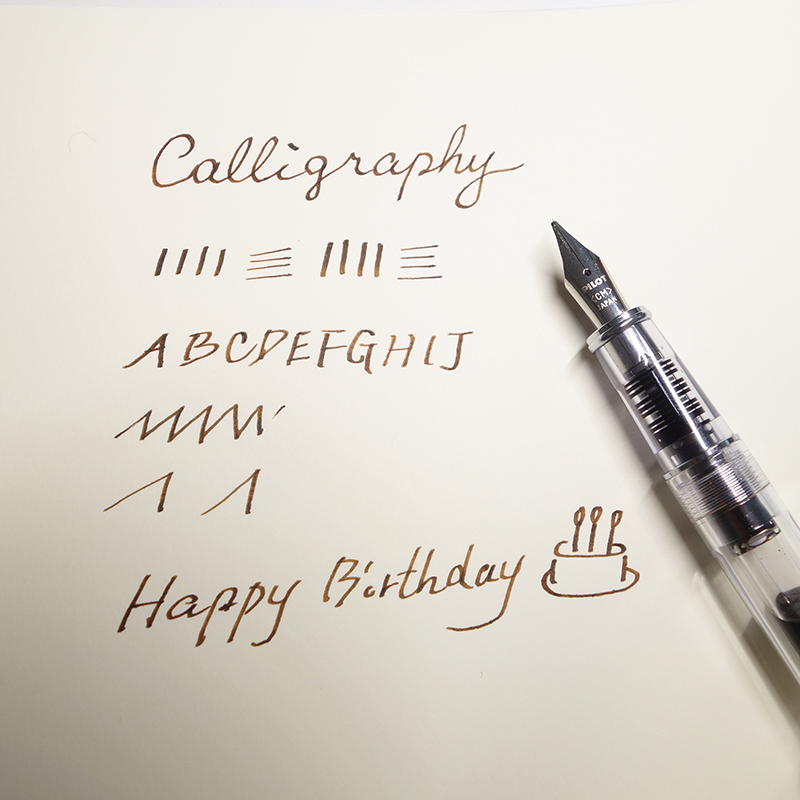 Calligraphy
ABCDEFGHIJ
Happy Birthday
PILOT
<CM>
JAPAN